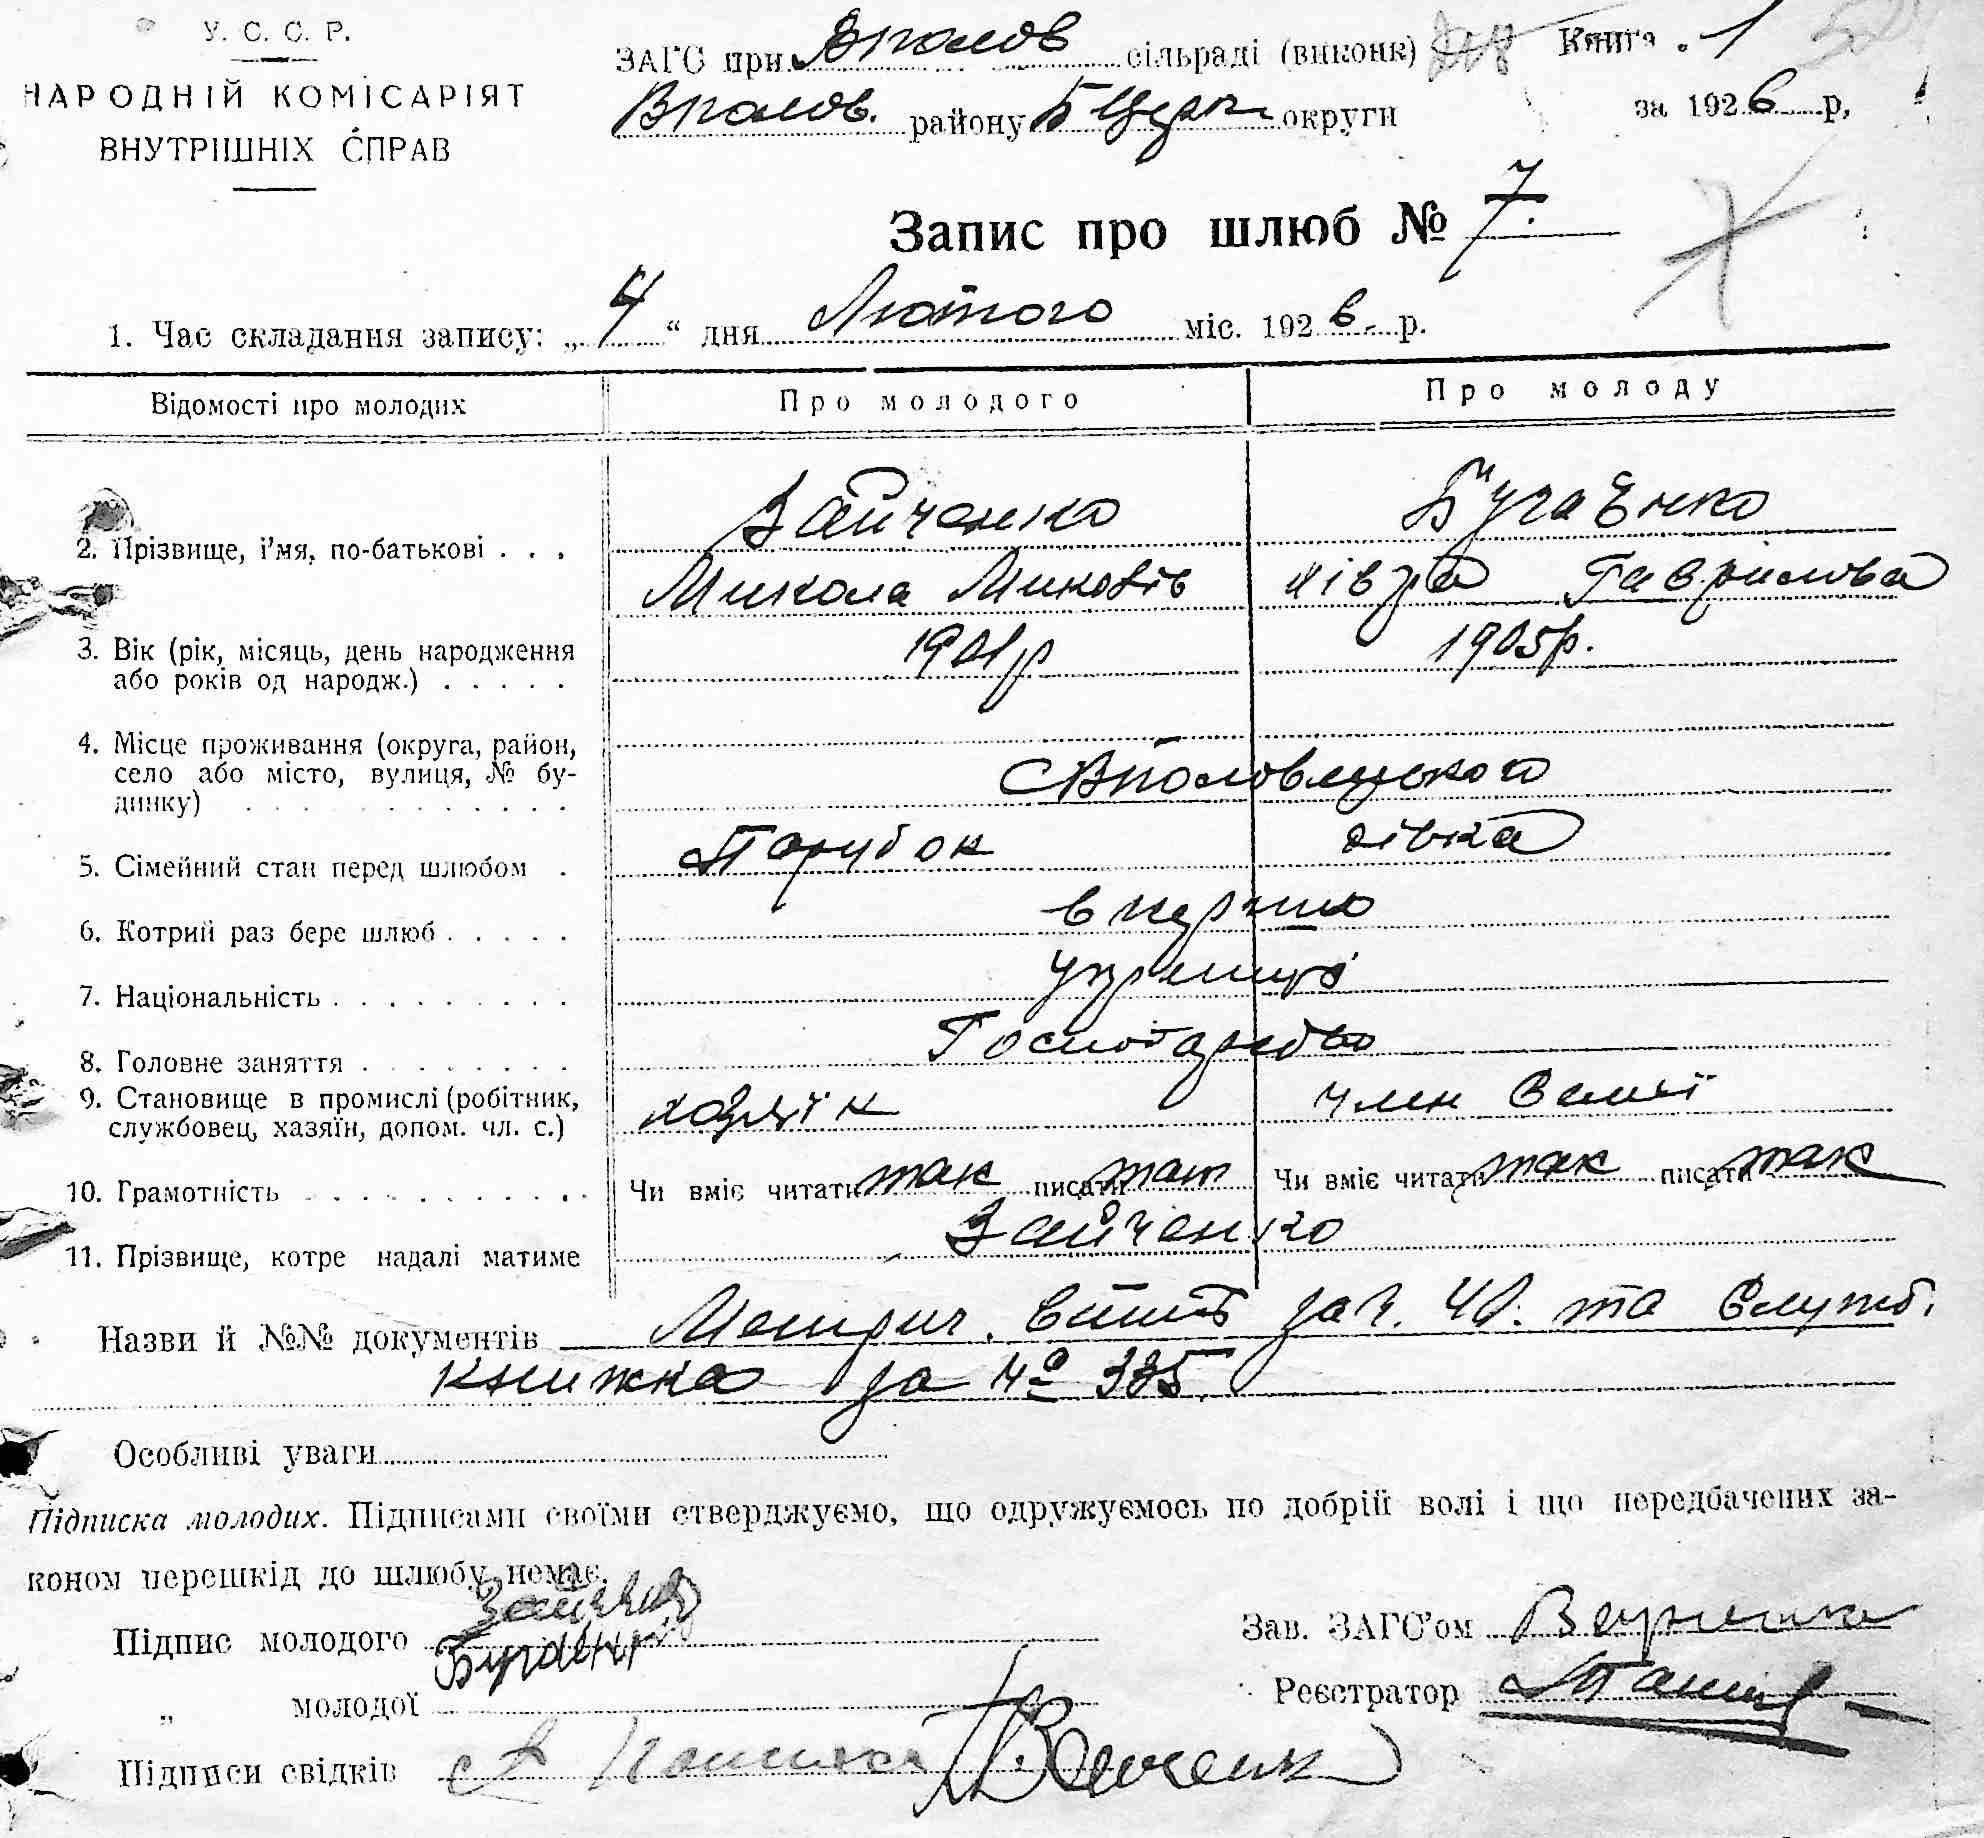 У. С. С. Р.
НАРОДНІЙ КОМІСАРІЯТ
ВНУТРІШНІХ СПРАВ
ЗАГС при Вполов сільраді (виконк) Книга 1
Вполов. району Б Церк округи за 1926 р,
Запис про шлюб № 7.
1. Час складання запису: „4“ дня Лютого міс. 1926. р.
Відомості про молодих Про молодого Про молоду
2. Прізвище, і’мя, по-батькові . . . Зайченко Бугаєнко
Микола Минович Гаврилова
3. Вік (рік, місяць, день народження 1901р 1905р.
або років од народж.) . . . . .
4. Місце проживання (округа, район,
село або місто, вулиця, № бу-
динку) . . . . . . . . . . . . Вполовецького
5. Сімейний стан перед шлюбом . Парубок дівка
6. Котрий раз бере шлюб . . . . . вперше
7. Національність . . . . . . . . . Українці
8. Головне заняття . . . . . . . . Господарство
9. Становище в промислі (робітник, хазяїн член Семї
службовец, хазяїн, допом. чл. с.)
10. Грамотність . . . . . . . . . . . Чи вміє читати так писати так Чи вміє читати так писати так
11. Прізвище, котре надалі матиме Зайченко
Назви й №№ документів Метрич. за ч. 40. та Служб.
книжка за № 335.
Особливі уваги
Підписка молодих. Підписами своїми стверджуємо, що одружуємось по добрій волі і що передбачених за-
коном перешкід до шлюбу немає.
Підпис молодого Зайченко Зав. ЗАГС’ом
Бугаєнк
„ молодої Реєстратор
Підписи свідків